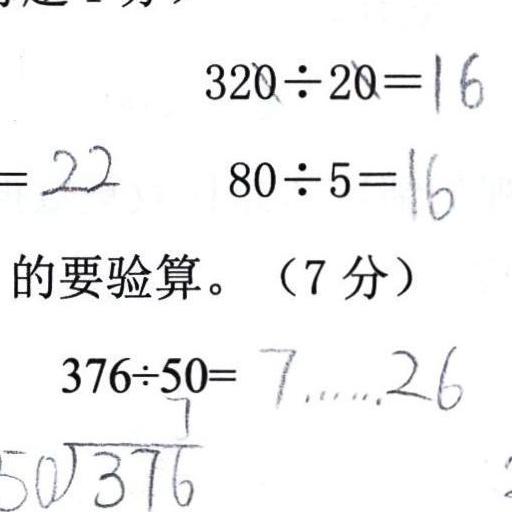 320÷20=16
=22 80÷5=16
的要验算。（7 分）
376÷50= 7……26
7
50)376